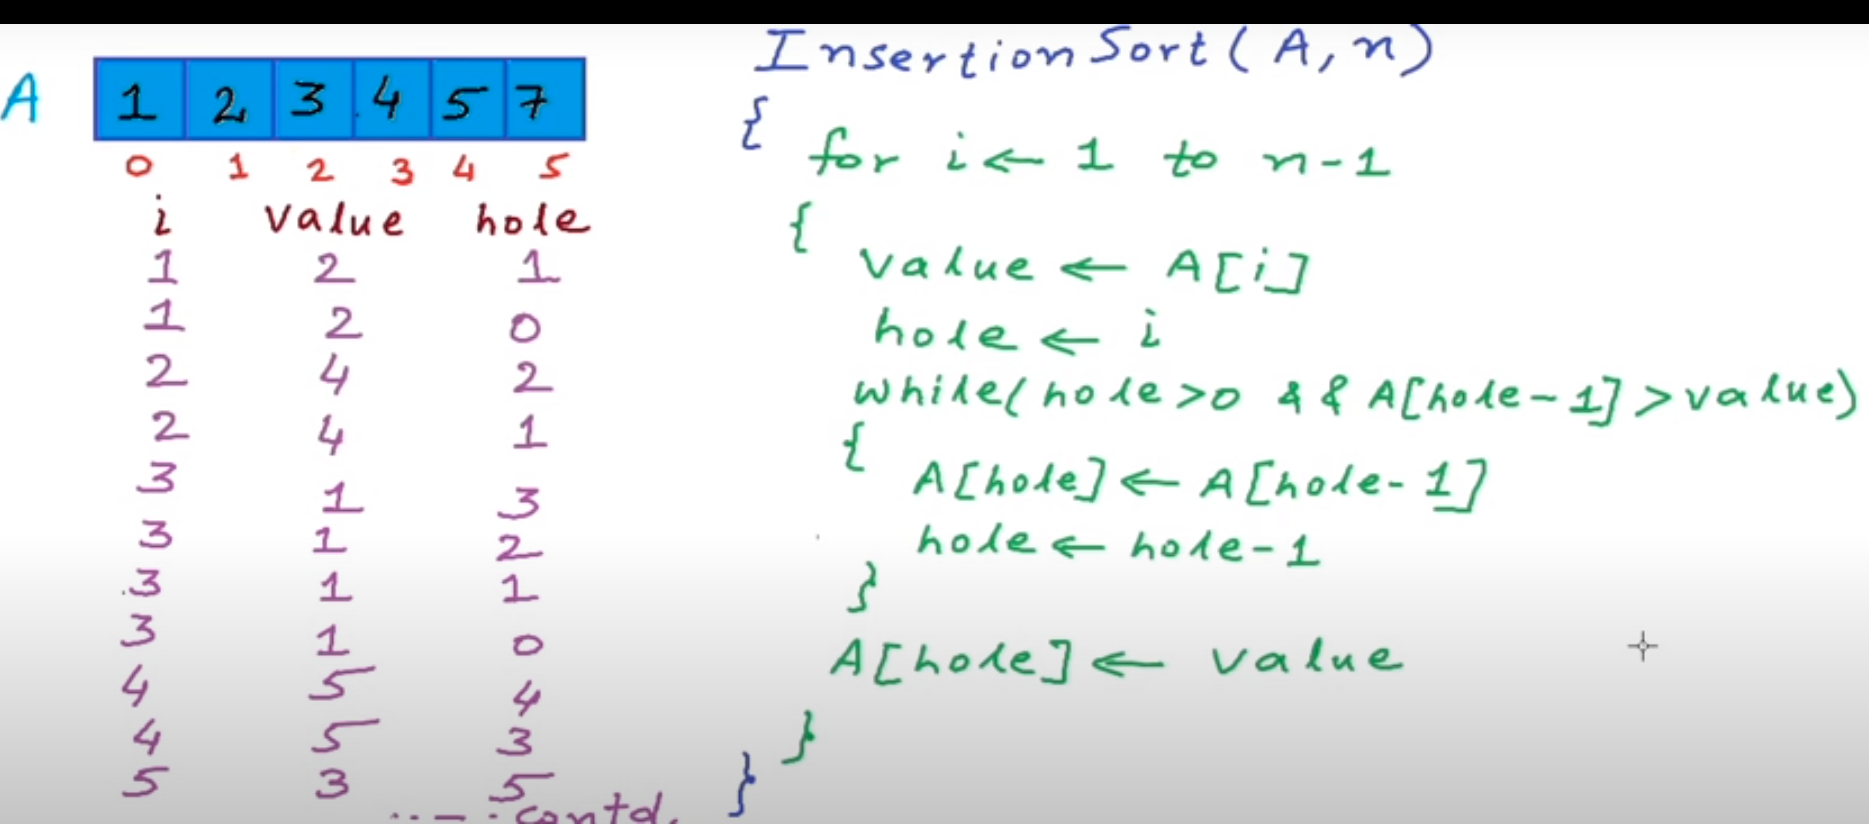 A 1 2 3 4 5 7
0 1 2 3 4 5
i value hole
1 2 1
1 2 0
2 4 2
2 4 1
3 1 3
3 1 2
3 1 1
3 1 0
4 5 4
4 5 3
5 3 5
..-.contd.
InsertionSort(A,n)
{
for i ← 1 to n-1
{
value ← A[i]
hole ← i
while(hole>0 && A[hole-1]>value)
{
A[hole] ← A[hole-1]
hole ← hole-1
}
A[hole] ← value
}
}